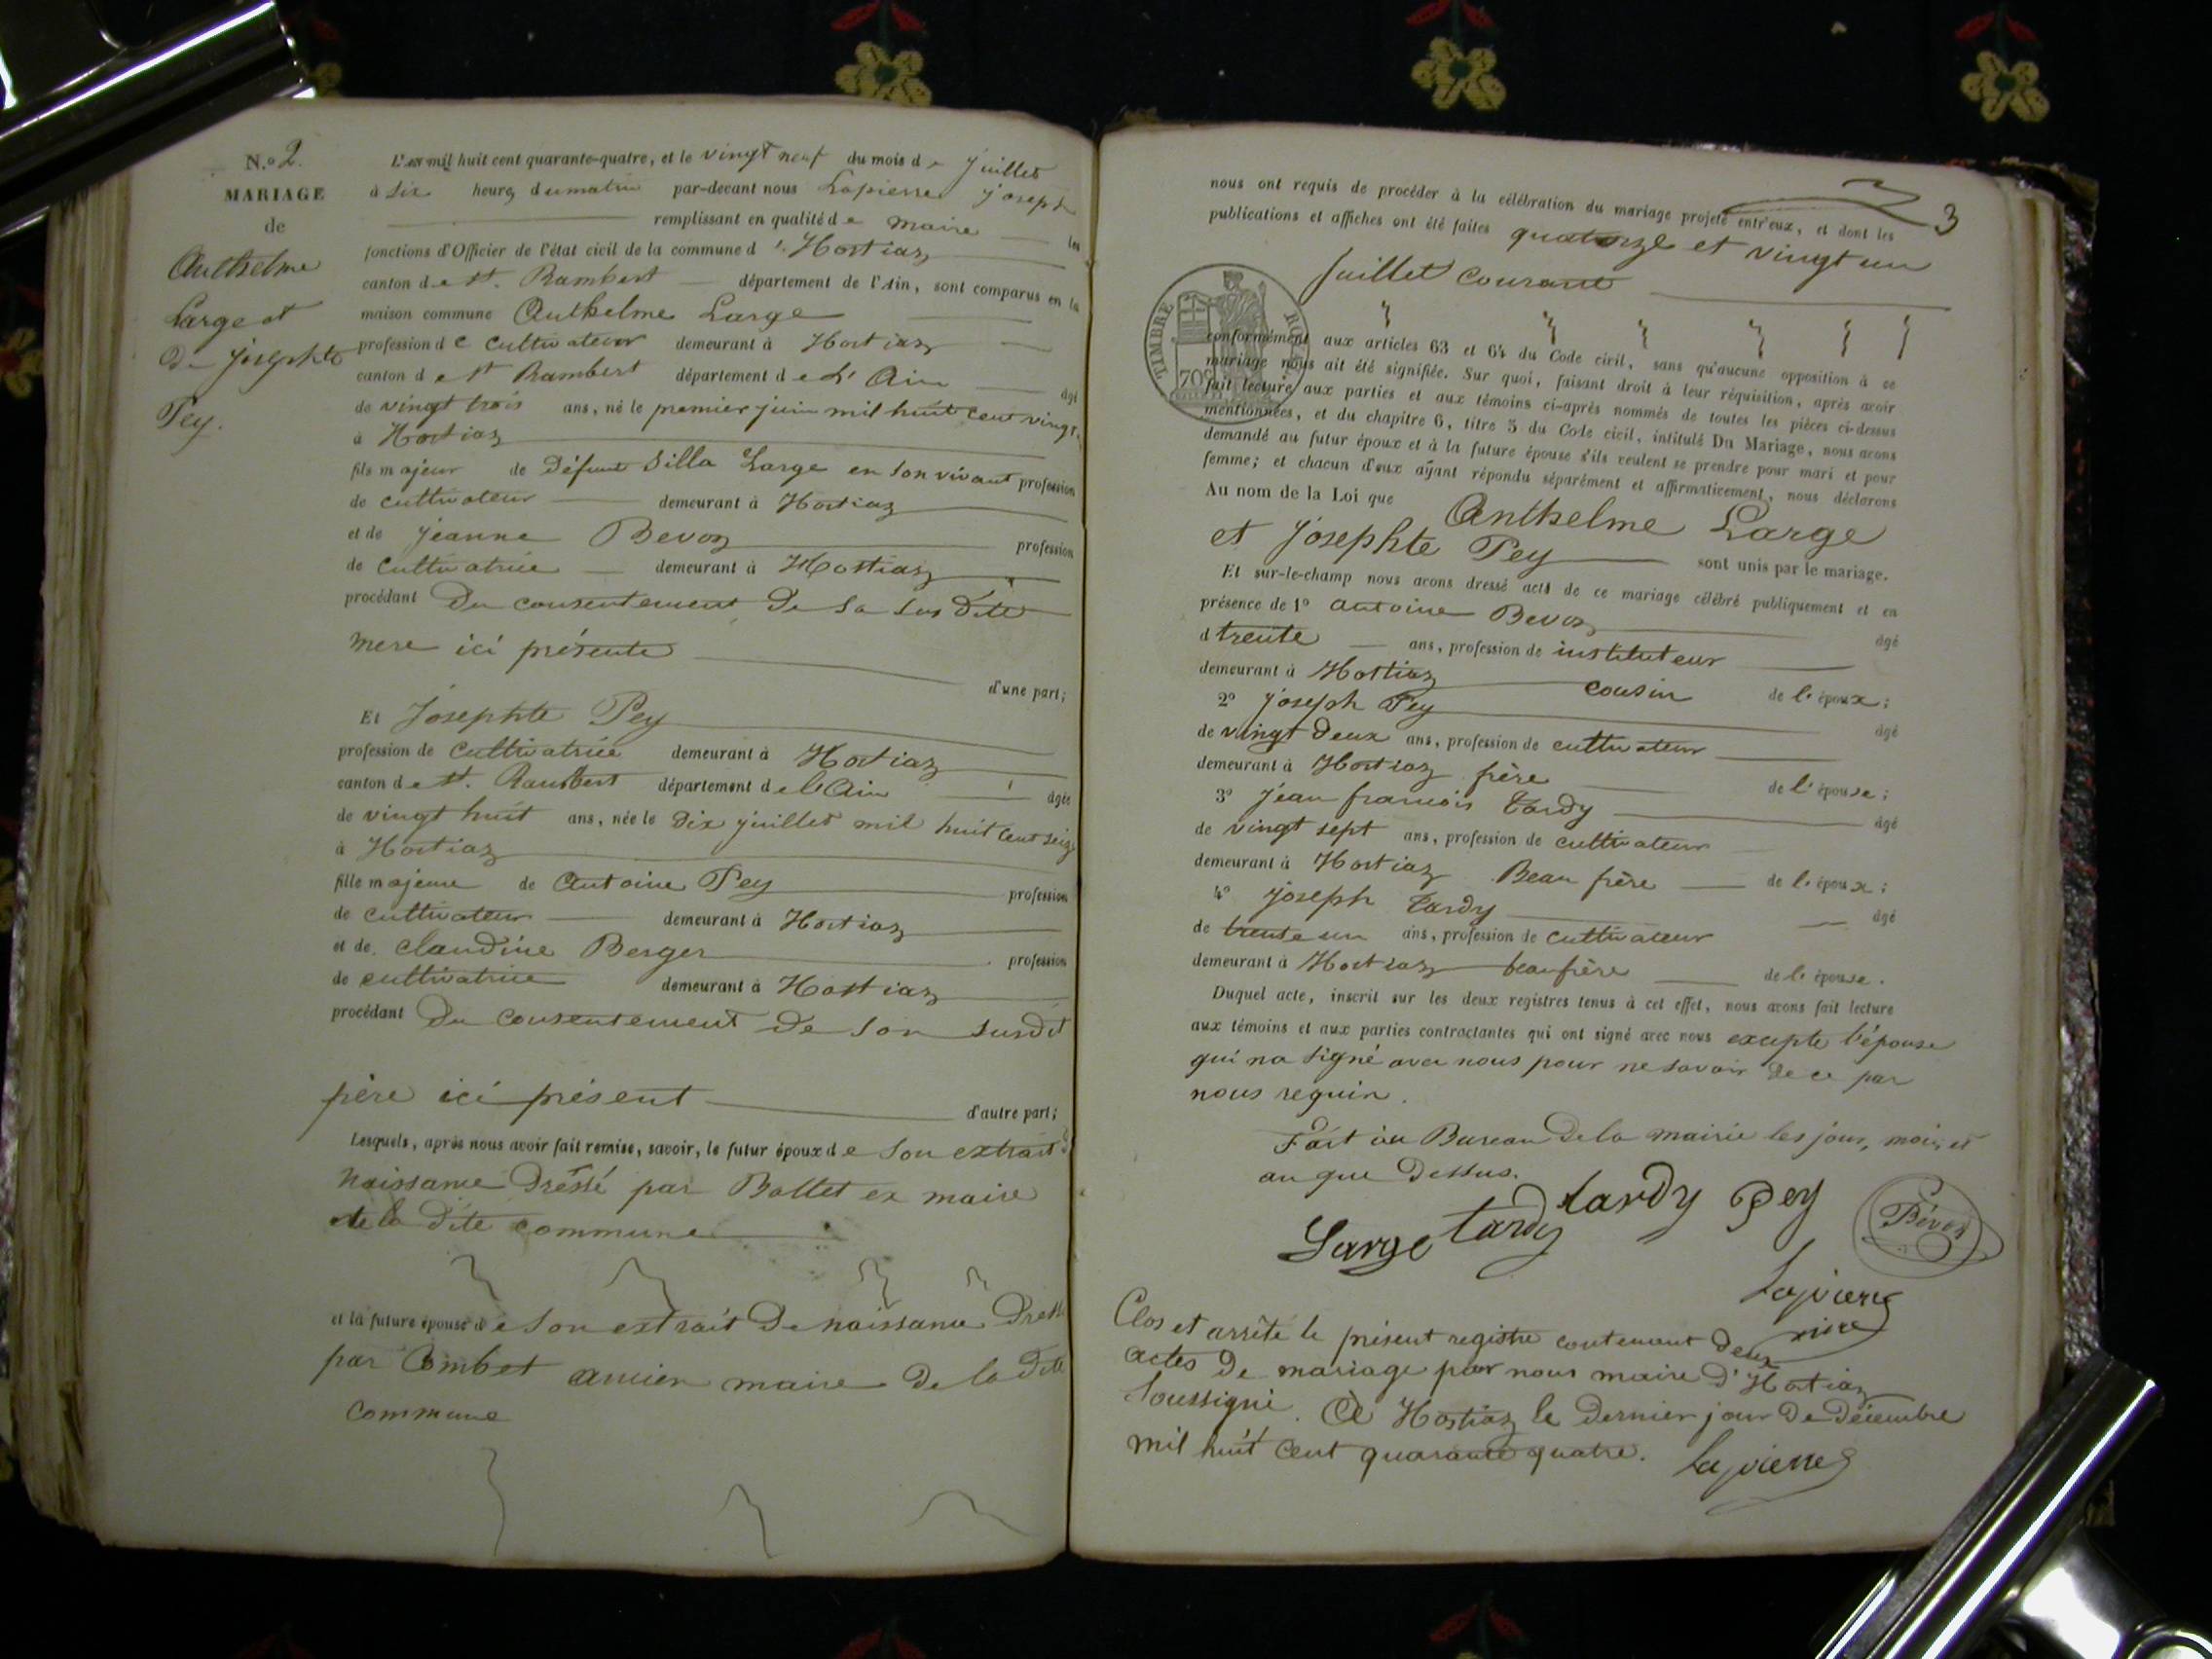 N.º 2.
MARIAGE
de
Anthelme
Large et
De Josephte
Pey.
L'an mil huit cent quarante-quatre, et le vingt neuf du mois de Juillet
à dix heures du matin par-devant nous Lapierre Joseph
remplissant en qualité de maire les
fonctions d'Officier de l'état civil de la commune d'Hostiaz
canton de St. Rambert département de l'Ain, sont comparus en la
maison commune Anthelme Large
profession de cultivateur demeurant à Hostiaz
canton de St Rambert département de L'Ain âgé
de vingt trois ans, né le premier juin mil huit cent vingt
à Hostiaz
fils majeur de Défunt Silla Large en son vivant profession
de cultivateur demeurant à Hostiaz
et de Jeanne Bevoz profession
de cultivatrice demeurant à Hostiaz
procédant Du consentement De Sa Sus dite
mere ici présente
d'une part;
Et Josephte Pey
profession de cultivatrice demeurant à Hostiaz
canton de St. Rambert département de l'Ain âgée
de vingt huit ans, née le Dix juillet mil huit cent seize
à Hostiaz
fille majeure de Antoine Pey profession
de cultivateur demeurant à Hostiaz
et de Claudine Berger profession
de cultivatrice demeurant à Hostiaz
procédant Du consentement De Son Susdit
père ici présent d'autre part;
Lesquels, après nous avoir fait remise, savoir, le futur époux de Son extrait d
Naissance Dréssé par Ballet ex maire
de la Dite commune
et la future épouse de Son extrait De naissance Dressé
par Combet ancien maire De la Dite
Commune
3
nous ont requis de procéder à la célébration du mariage projeté entr'eux, et dont les
publications et affiches ont été faites quatorze et vingt un
Juillet courant
TIMBRE ROYAL
70c
conformément aux articles 63 et 64 du Code civil, sans qu'aucune opposition à ce
mariage nous ait été signifiée. Sur quoi, faisant droit à leur réquisition, après avoir
fait lecture aux parties et aux témoins ci-après nommés de toutes les pièces ci-dessus
mentionnées, et du chapitre 6, titre 5 du Code civil, intitulé Du Mariage, nous avons
demandé au futur époux et à la future épouse s'ils veulent se prendre pour mari et pour
femme; et chacun d'eux ayant répondu séparément et affirmativement, nous déclarons
Au nom de la Loi que Anthelme Large
et Josephte Pey sont unis par le mariage.
Et sur-le-champ nous avons dressé acte de ce mariage célébré publiquement et en
présence de 1º Antoine Bevoz âgé
d trente ans, profession de instituteur
demeurant à Hostiaz cousin de l'époux;
2º Joseph Pey âgé
de vingt Deux ans, profession de cultivateur
demeurant à Hostiaz frère de l'épouse;
3º Jean francois Tardy âgé
de vingt sept ans, profession de cultivateur
demeurant à Hostiaz Beau frère de l'époux;
4º Joseph Tardy âgé
de trente un ans, profession de cultivateur
demeurant à Hostiaz beaufrère de l'épouse.
Duquel acte, inscrit sur les deux registres tenus à cet effet, nous avons fait lecture
aux témoins et aux parties contractantes qui ont signé avec nous excepte l'épouse
qui na signé avec nous pour ne savoir de ce par
nous requin.
Fait au Bureau De la mairie les jour, mois et
an que Dessus.
Large tardy tardy Pey Bévoz
Lapierre
mire
Clos et arrête le présent registre contenant Deux
actes De mariage par nous maire D'Hostiaz
Soussigné. A Hostiaz le Dernier jour De Décembre
mil huit cent quarante quatre. Lapierre